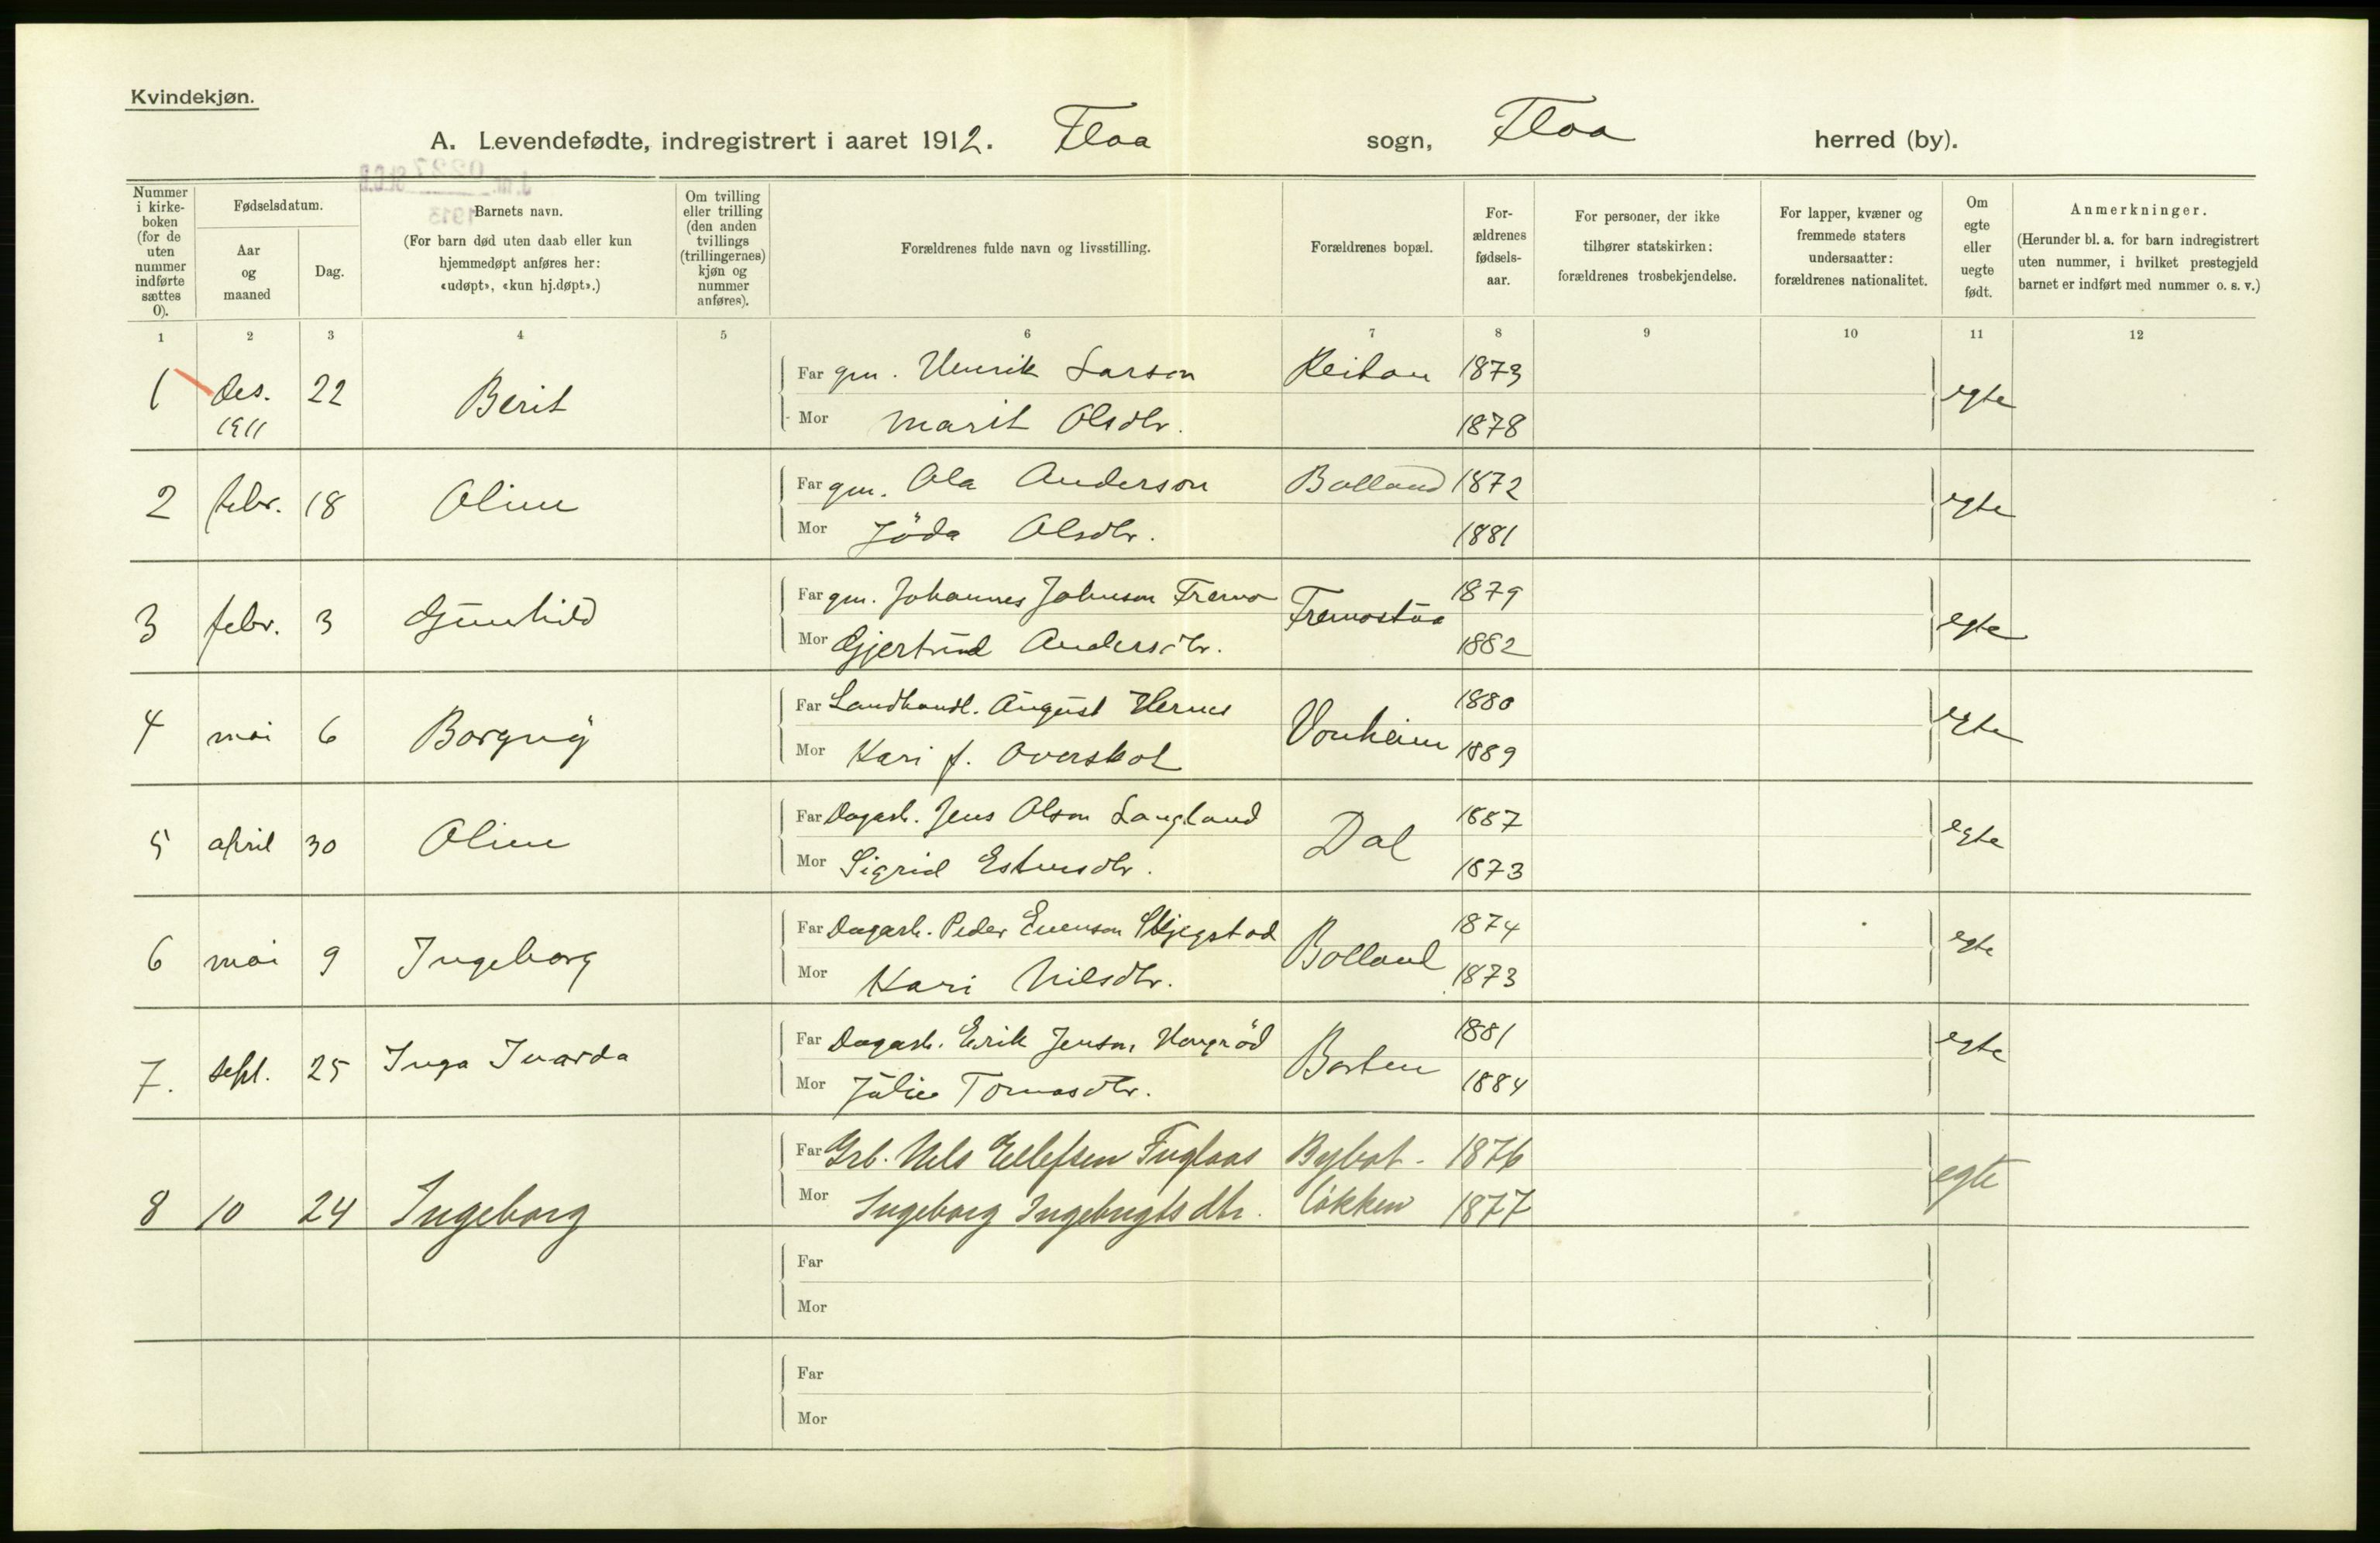 Kvindekjøn.
A. Levendefødte, indregistrert i aaret 1912. Flaa sogn, Flaa herred (by).
Nummer i kirkeboken (for de uten nummer indførte sættes 0).
Fødselsdatum.
Aar og maaned
Dag.
Barnets navn.
(For barn død uten daab eller kun hjemmedøpt anføres her: «udøpt», «kun hj.døpt».)
Om tvilling eller trilling (den anden tvillings (trillingernes) kjøn og nummer anføres).
Forældrenes fulde navn og livsstilling.
Forældrenes bopæl.
Forældrenes fødselsaar.
For personer, der ikke tilhører statskirken: forældrenes trosbekjendelse.
For lapper, kvæner og fremmede staters undersaatter: forældrenes nationalitet.
Om egte eller uegte født.
Anmerkninger.
(Herunder bl. a. for barn indregistrert uten nummer, i hvilket prestegjeld barnet er indført med nummer o. s. v.)
1 2 3 4 5 6 7 8 9 10 11 12
1 Des. 1911 22 Berit Far gm. Henrik Larson Reitan 1873 egte
Mor Marit Olsdtr. 1878
2 febr. 18 Oline Far gm. Ola Anderson Bolland 1872 egte
Mor Jöda Olsdtr. 1881
3 febr. 3 Gunhild Far gm. Johannes Johnson Fremo Fremostua 1879 egte
Mor Gjertrud Andersdtr. 1882
4 mai 6 Borgny Far Landhandl. August Hernes Vonheim 1880 egte
Mor Kari f. Overskot 1889
5 april 30 Oline Far Dagarb. Jens Olson Langland Dal 1887 egte
Mor Sigrid Estensdtr. 1873
6 mai 9 Ingeborg Far Dagarb. Peder Evenson Skjegstad Bolland 1874 egte
Mor Kari Nilsdtr. 1873
7. sept. 25 Inga Ivarda Far Dagarb. Erik Jenson Haugröd Borten 1881 egte
Mor Julie Tomasdtr. 1884
8 10 24 Ingeborg Far Grb. Nels Ellefsen Fuglaas Bybot- 1876 egte
Mor Ingeborg Ingebrigtsdtr. løkken 1877
Far
Mor
Far
Mor